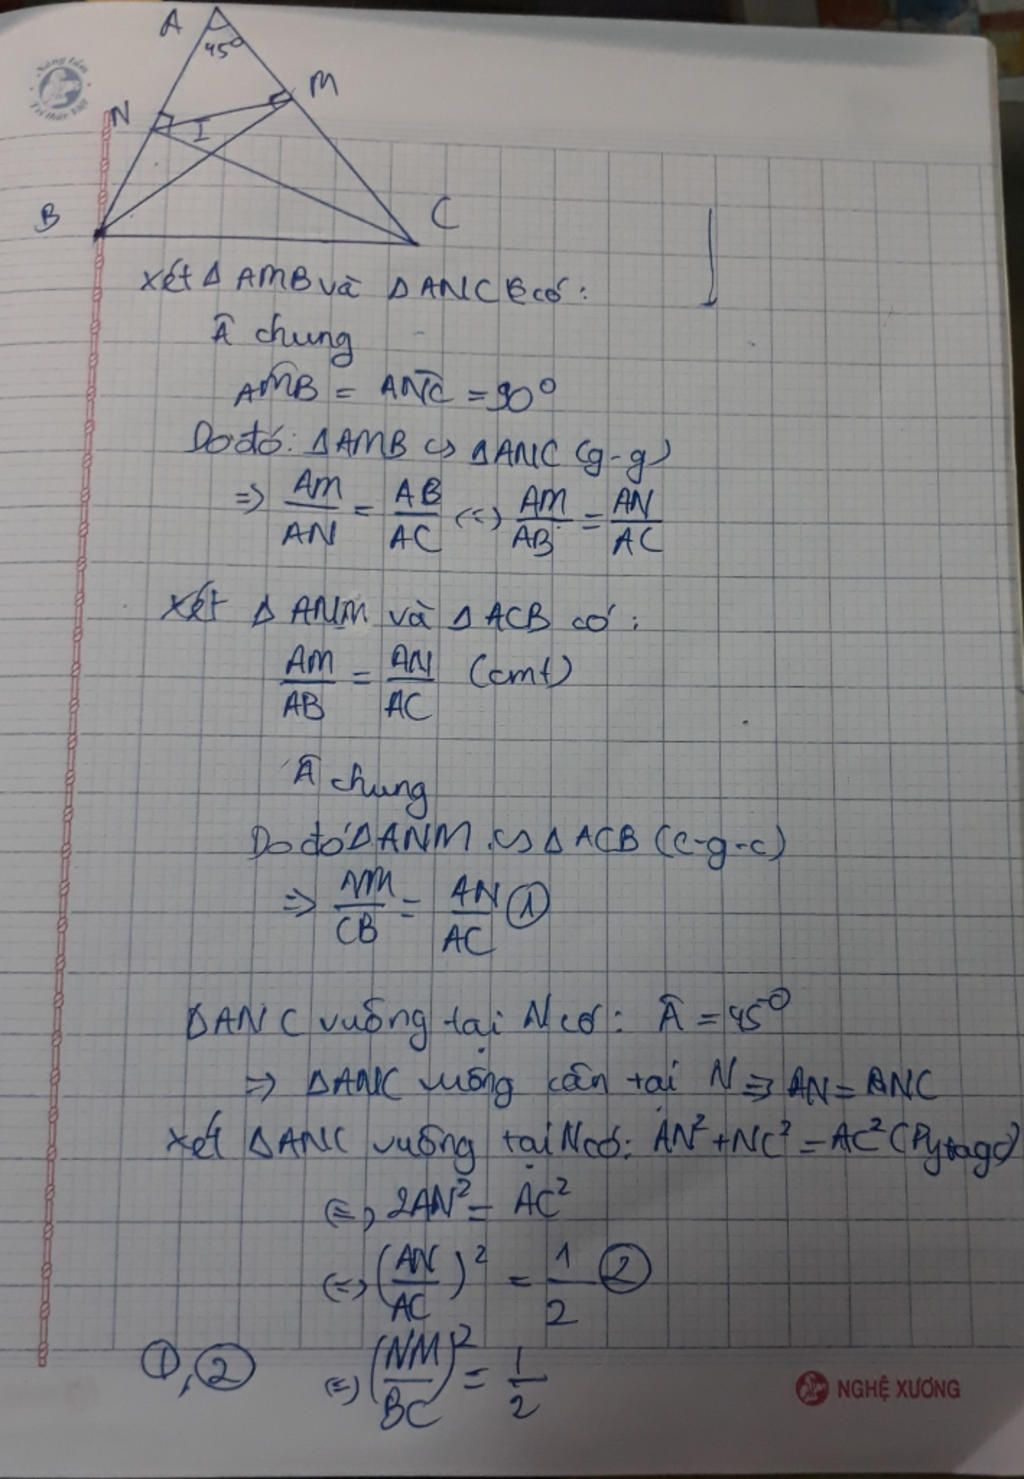 A
45°
M
N
I
B
C
Nâng tầm
Tri thức Việt
Xét Δ AMB và Δ ANC có:
Â chung
AMB = ANC = 90°
Do đó: ΔAMB ∽ ΔANC (g-g)
=> AM/AN = AB/AC <=> AM/AB = AN/AC
Xét Δ ANM và Δ ACB có:
AM/AB = AN/AC (cmt)
Â chung
Do đó ΔANM ∽ Δ ACB (c-g-c)
=> NM/CB = AN/AC ①
ΔANC vuông tại N có: Â = 45°
=> ΔANC vuông cân tại N => AN = NC
Xét ΔANC vuông tại N có: AN² + NC² = AC² (Pytago)
<=> 2AN² = AC²
<=> (AN/AC)² = 1/2 ②
①, ② <=> (NM/BC)² = 1/2
NGHỆ XƯƠNG